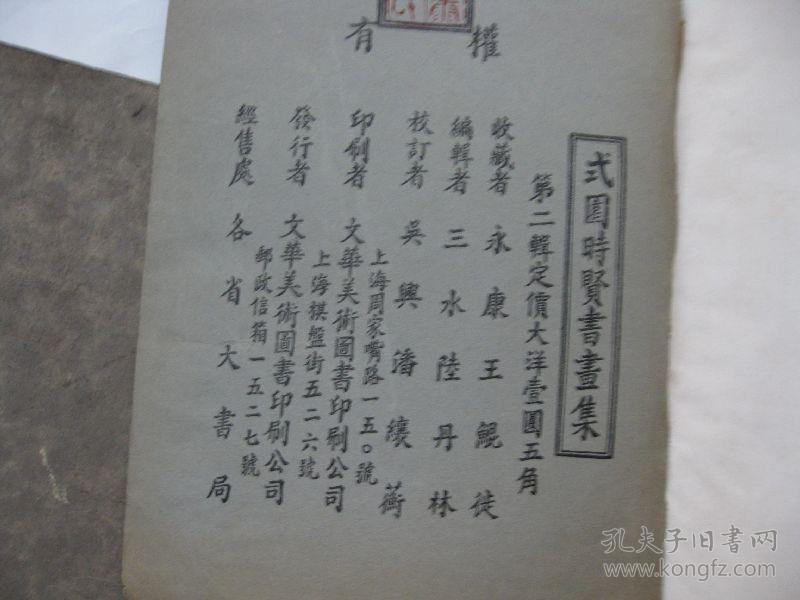 權
有
式園時賢書畫集
第二輯定價大洋壹圓五角
收藏者 永康王鯤徙
編輯者 三水陸丹林
校訂者 吳興潘蘘蘅
上海周家嘴路一五〇號
印刷者 文華美術圖書印刷公司
上海棋盤街五二六號
發行者 文華美術圖書印刷公司
郵政信箱一五二七號
經售處 各省大書局
孔夫子旧书网
www.kongfz.com